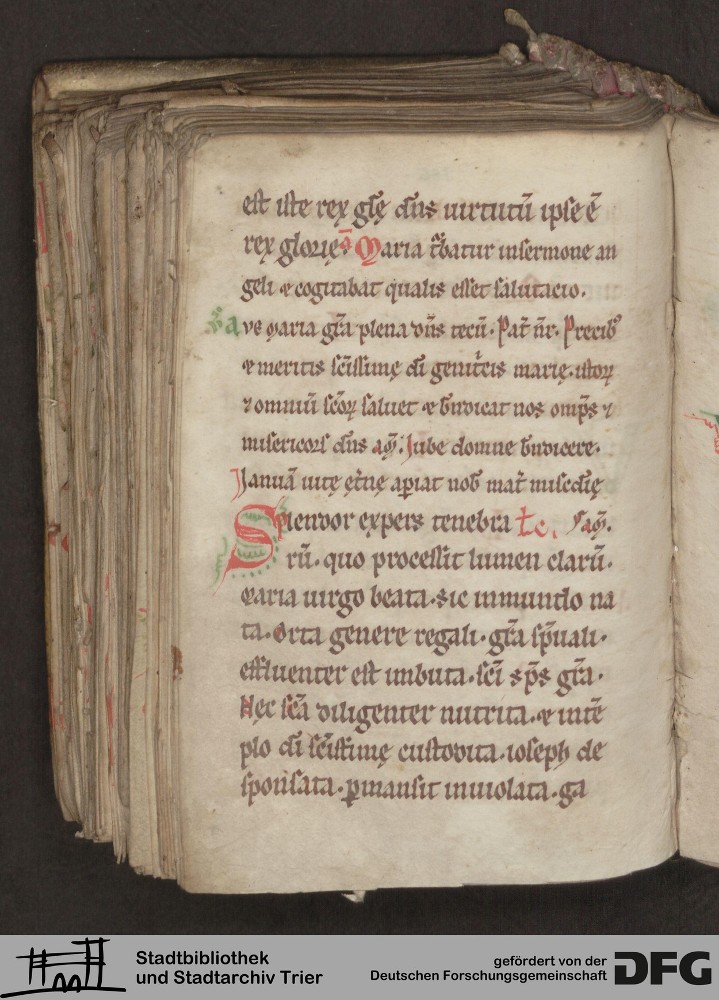 est iste rex gl̄ę dn̄s uirtutū ipse ē
rex glorię. ā Maria t̾batur insermone an
geli ⁊ cogitabat qualis esset salutacio.
v̄ Ave maria gr̄a plena dn̄s tecū. Pat̄ nr̄. Precibꝰ
⁊ meritis sc̄issimę dī genit̾cis marię. istoꝝ
⁊ omniū sc̄oꝝ saluet ⁊ bn̄dicat nos omp̄s ⁊
misericors dn̄s am̄. Iube domne bn̄dicere.
Ianuā uitę ęt̾nę apiat nob̄ mat̄ misc̄dię
Splendor expers tenebra le. am̄.
rū. quo processit lumen clarū.
maria uirgo beata. Sic inmundo na
ta. Orta genere regali. gr̄a sp̄uali.
effluenter est imbuta. sc̄i sp̄s gr̄a.
Hęc sc̄a diligenter nutrita. ⁊ intē
plo dī sc̄issimę custodita. ioseph de
sponsata. ꝑmansit inuiolata. ga
Stadtbibliothek
und Stadtarchiv Trier
gefördert von der
Deutschen Forschungsgemeinschaft
DFG